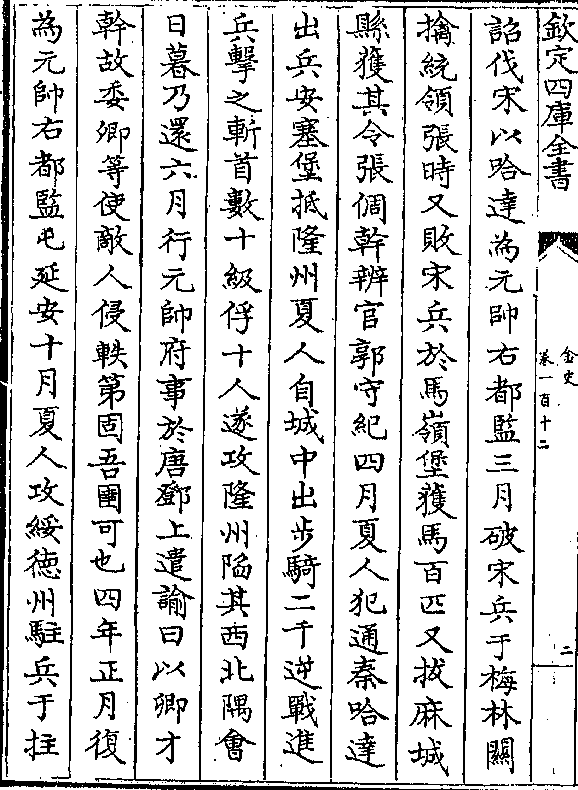 欽定四庫全書
金史
卷一百十二
二
詔伐宋以哈達為元帥右都監三月破宋兵于梅林關
擒統領張時又敗宋兵於馬嶺堡獲馬百匹又拔麻城
縣獲其令張倜幹辦官郭守紀四月夏人犯通秦哈達
出兵安塞堡抵隆州夏人自城中出步騎二千逆戰進
兵擊之斬首數十級俘十人遂攻隆州陷其西北隅會
日暮乃還六月行元帥府事於唐鄧上遣諭曰以卿才
幹故委卿等使敵人侵軼第固吾圉可也四年正月復
為元帥右都監屯延安十月夏人攻綏徳州駐兵于拄